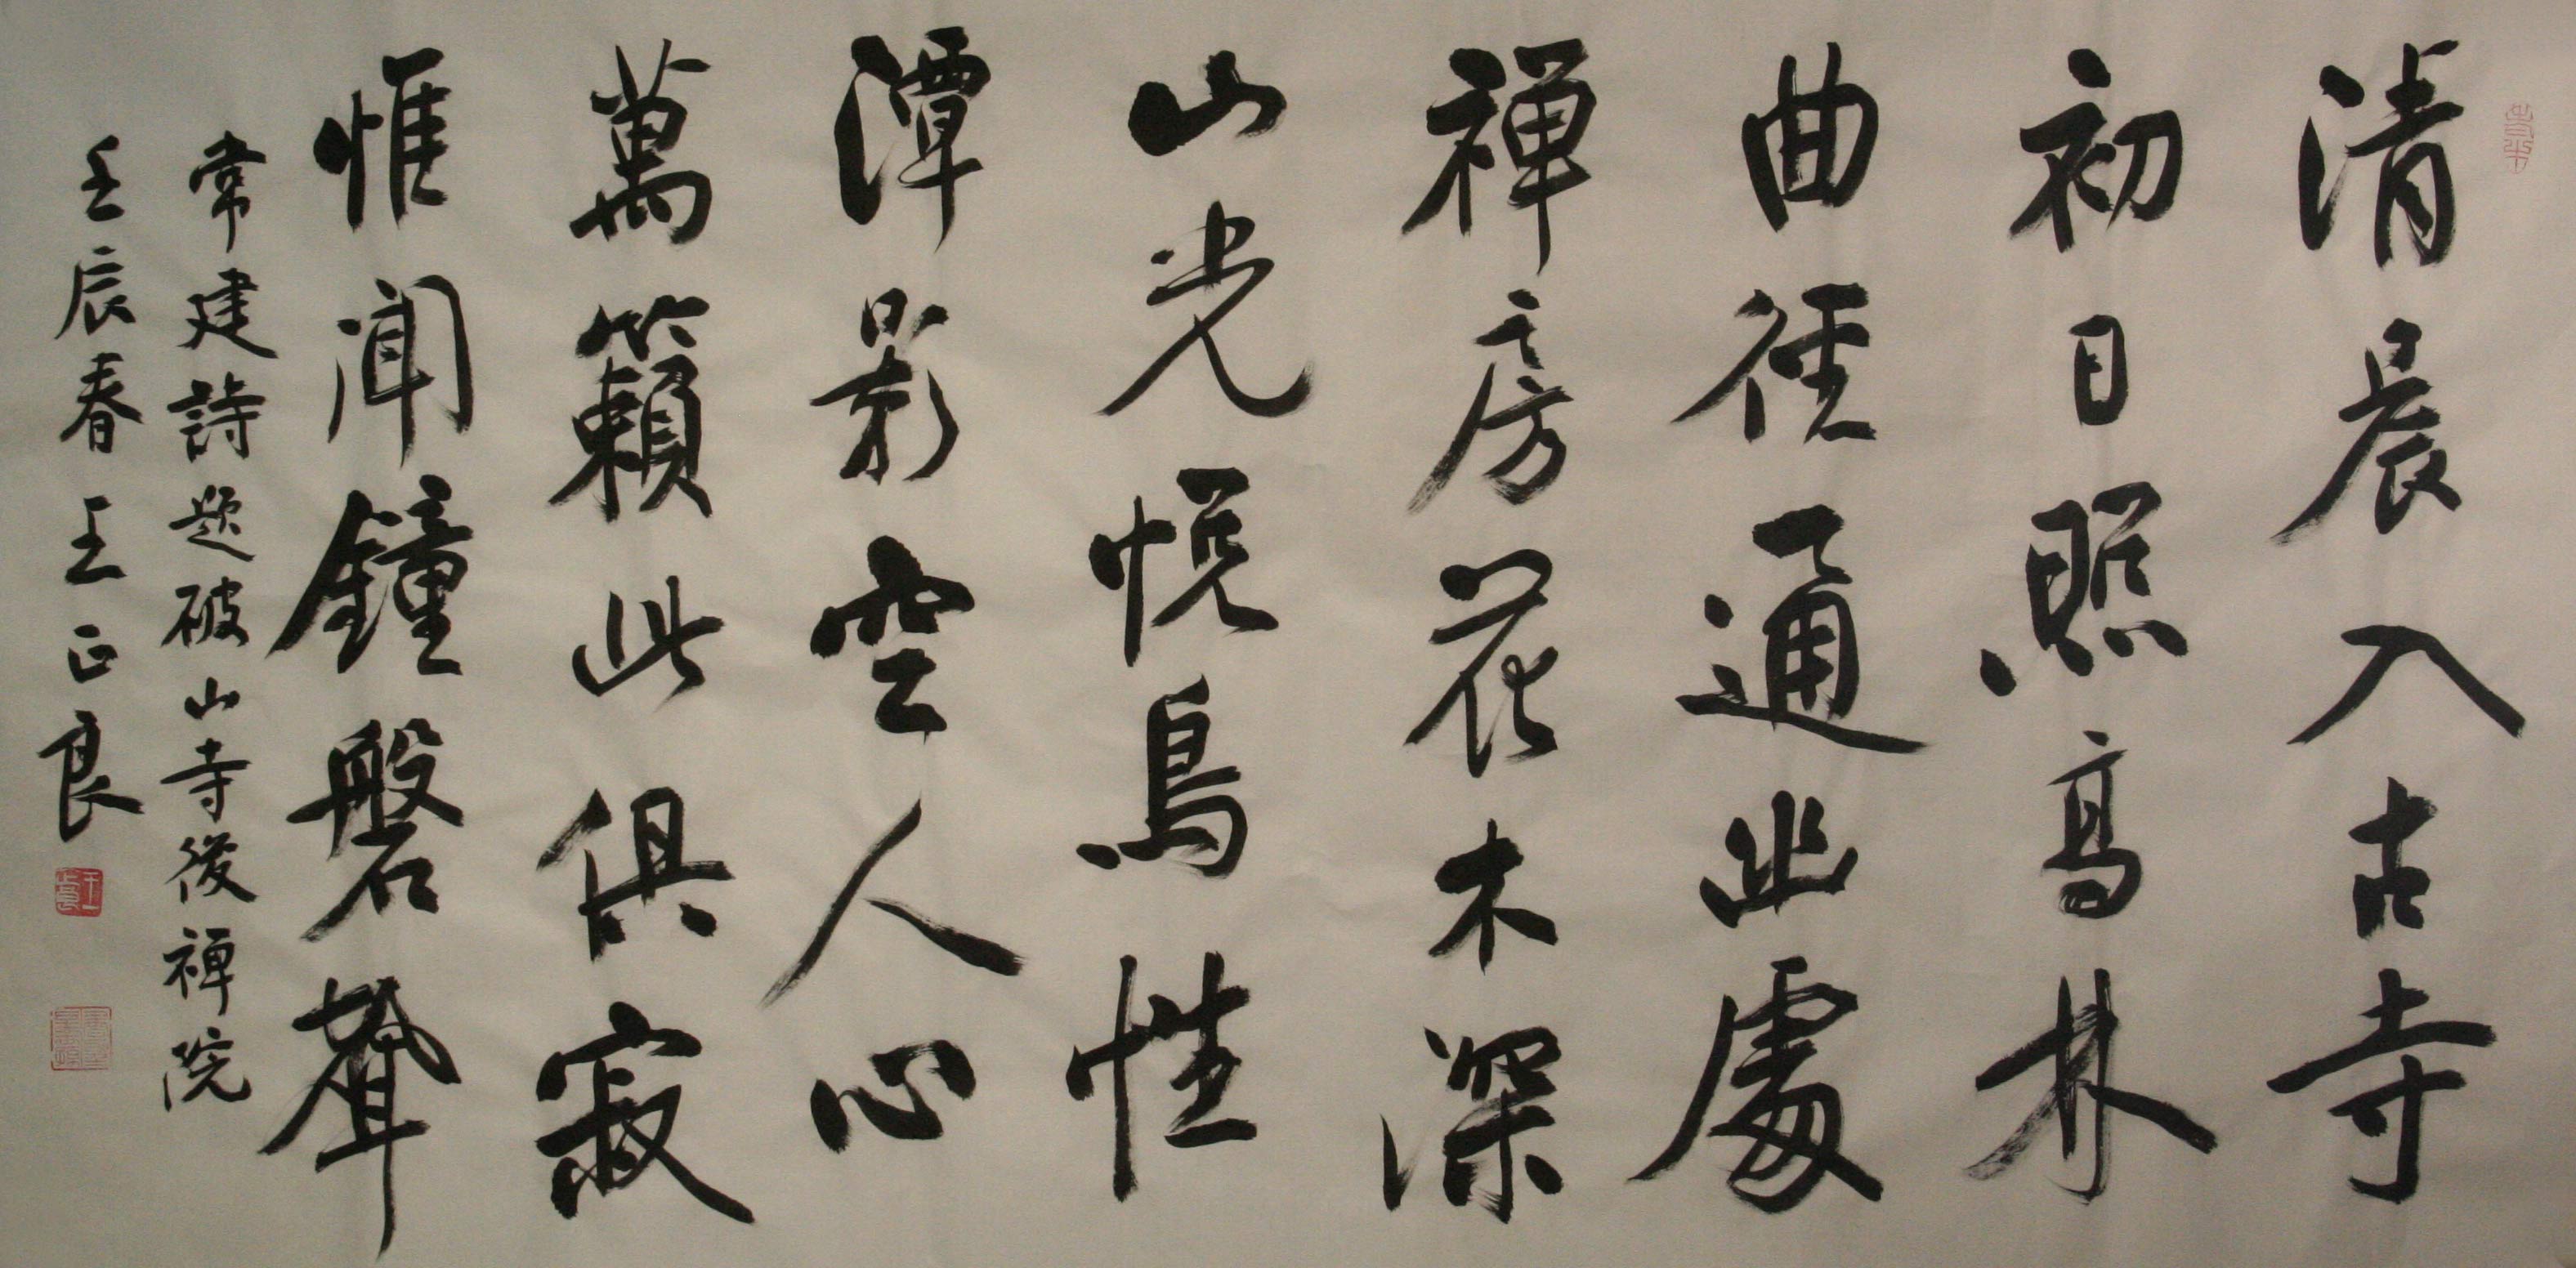 清晨入古寺
初日照高林
曲径通幽處
禅房花木深
山光悦鳥性
潭影空人心
萬籟此俱寂
惟聞鐘磐聲
常建詩題破山寺後禅院
壬辰春王正良